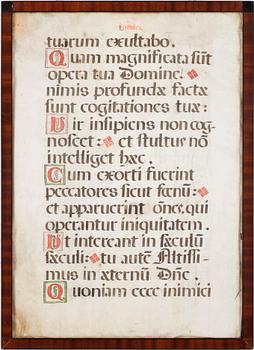 tuarum exultabo.
Quam magnificata sũt
opera tua Domine:
nimis profundæ factæ
sunt cogitationes tuæ:
Vir insipiens non cog-
noscet: et stultus nõ
intelliget hæc.
Cum exorti fuerint
peccatores sicut fœnũ:
et apparuerint õnes, qui
operantur iniquitatem.
Vt intereant in sæculũ
sæculi: tu autẽ Altissi-
mus in æternũ Dñe.
Quoniam ecce inimici